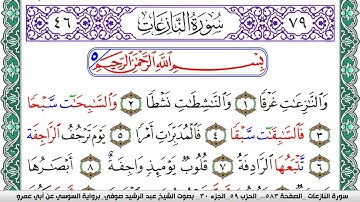 ٧٩ سُورَةُ النَّازِعَاتِ ٤٦
بِسْمِ اللَّهِ الرَّحْمَٰنِ الرَّحِيمِ
وَالنَّٰزِعَٰتِ غَرْقًا ١ وَالنَّٰشِطَٰتِ نَشْطًا ٢ وَالسَّٰبِحَٰت سَّبْحًا
٣ فَالسَّٰبِقَٰت سَّبْقًا ٤ فَالْمُدَبِّرَٰتِ أَمْرًا ٥ يَوْمَ تَرْجُفُ الرَّاجِفَة
٦ تَّتْبَعُهَا الرَّادِفَةُ ٧ قُلُوبٌ يَوْمَئِذٍ وَاجِفَةٌ ٨ أَبْصَٰرُهَا
سورة النازعات الصفحة ٥٨٣ الحزب ٥٩ الجزء ٣٠ بصوت الشيخ عبد الرشيد صوفي برواية السوسي عن أبي عمرو